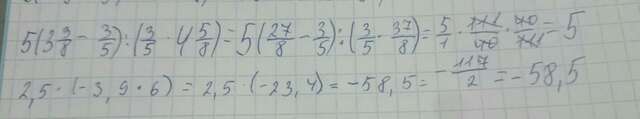 5(3 3/8 - 3/5):(3/5 · 4 5/8) = 5(27/8 - 3/5):(3/5 · 37/8) = 5/1 · 111/40 · 40/111 = 5
2,5·(-3,9·6) = 2,5·(-23,4) = -58,5 = -117/2 = -58,5